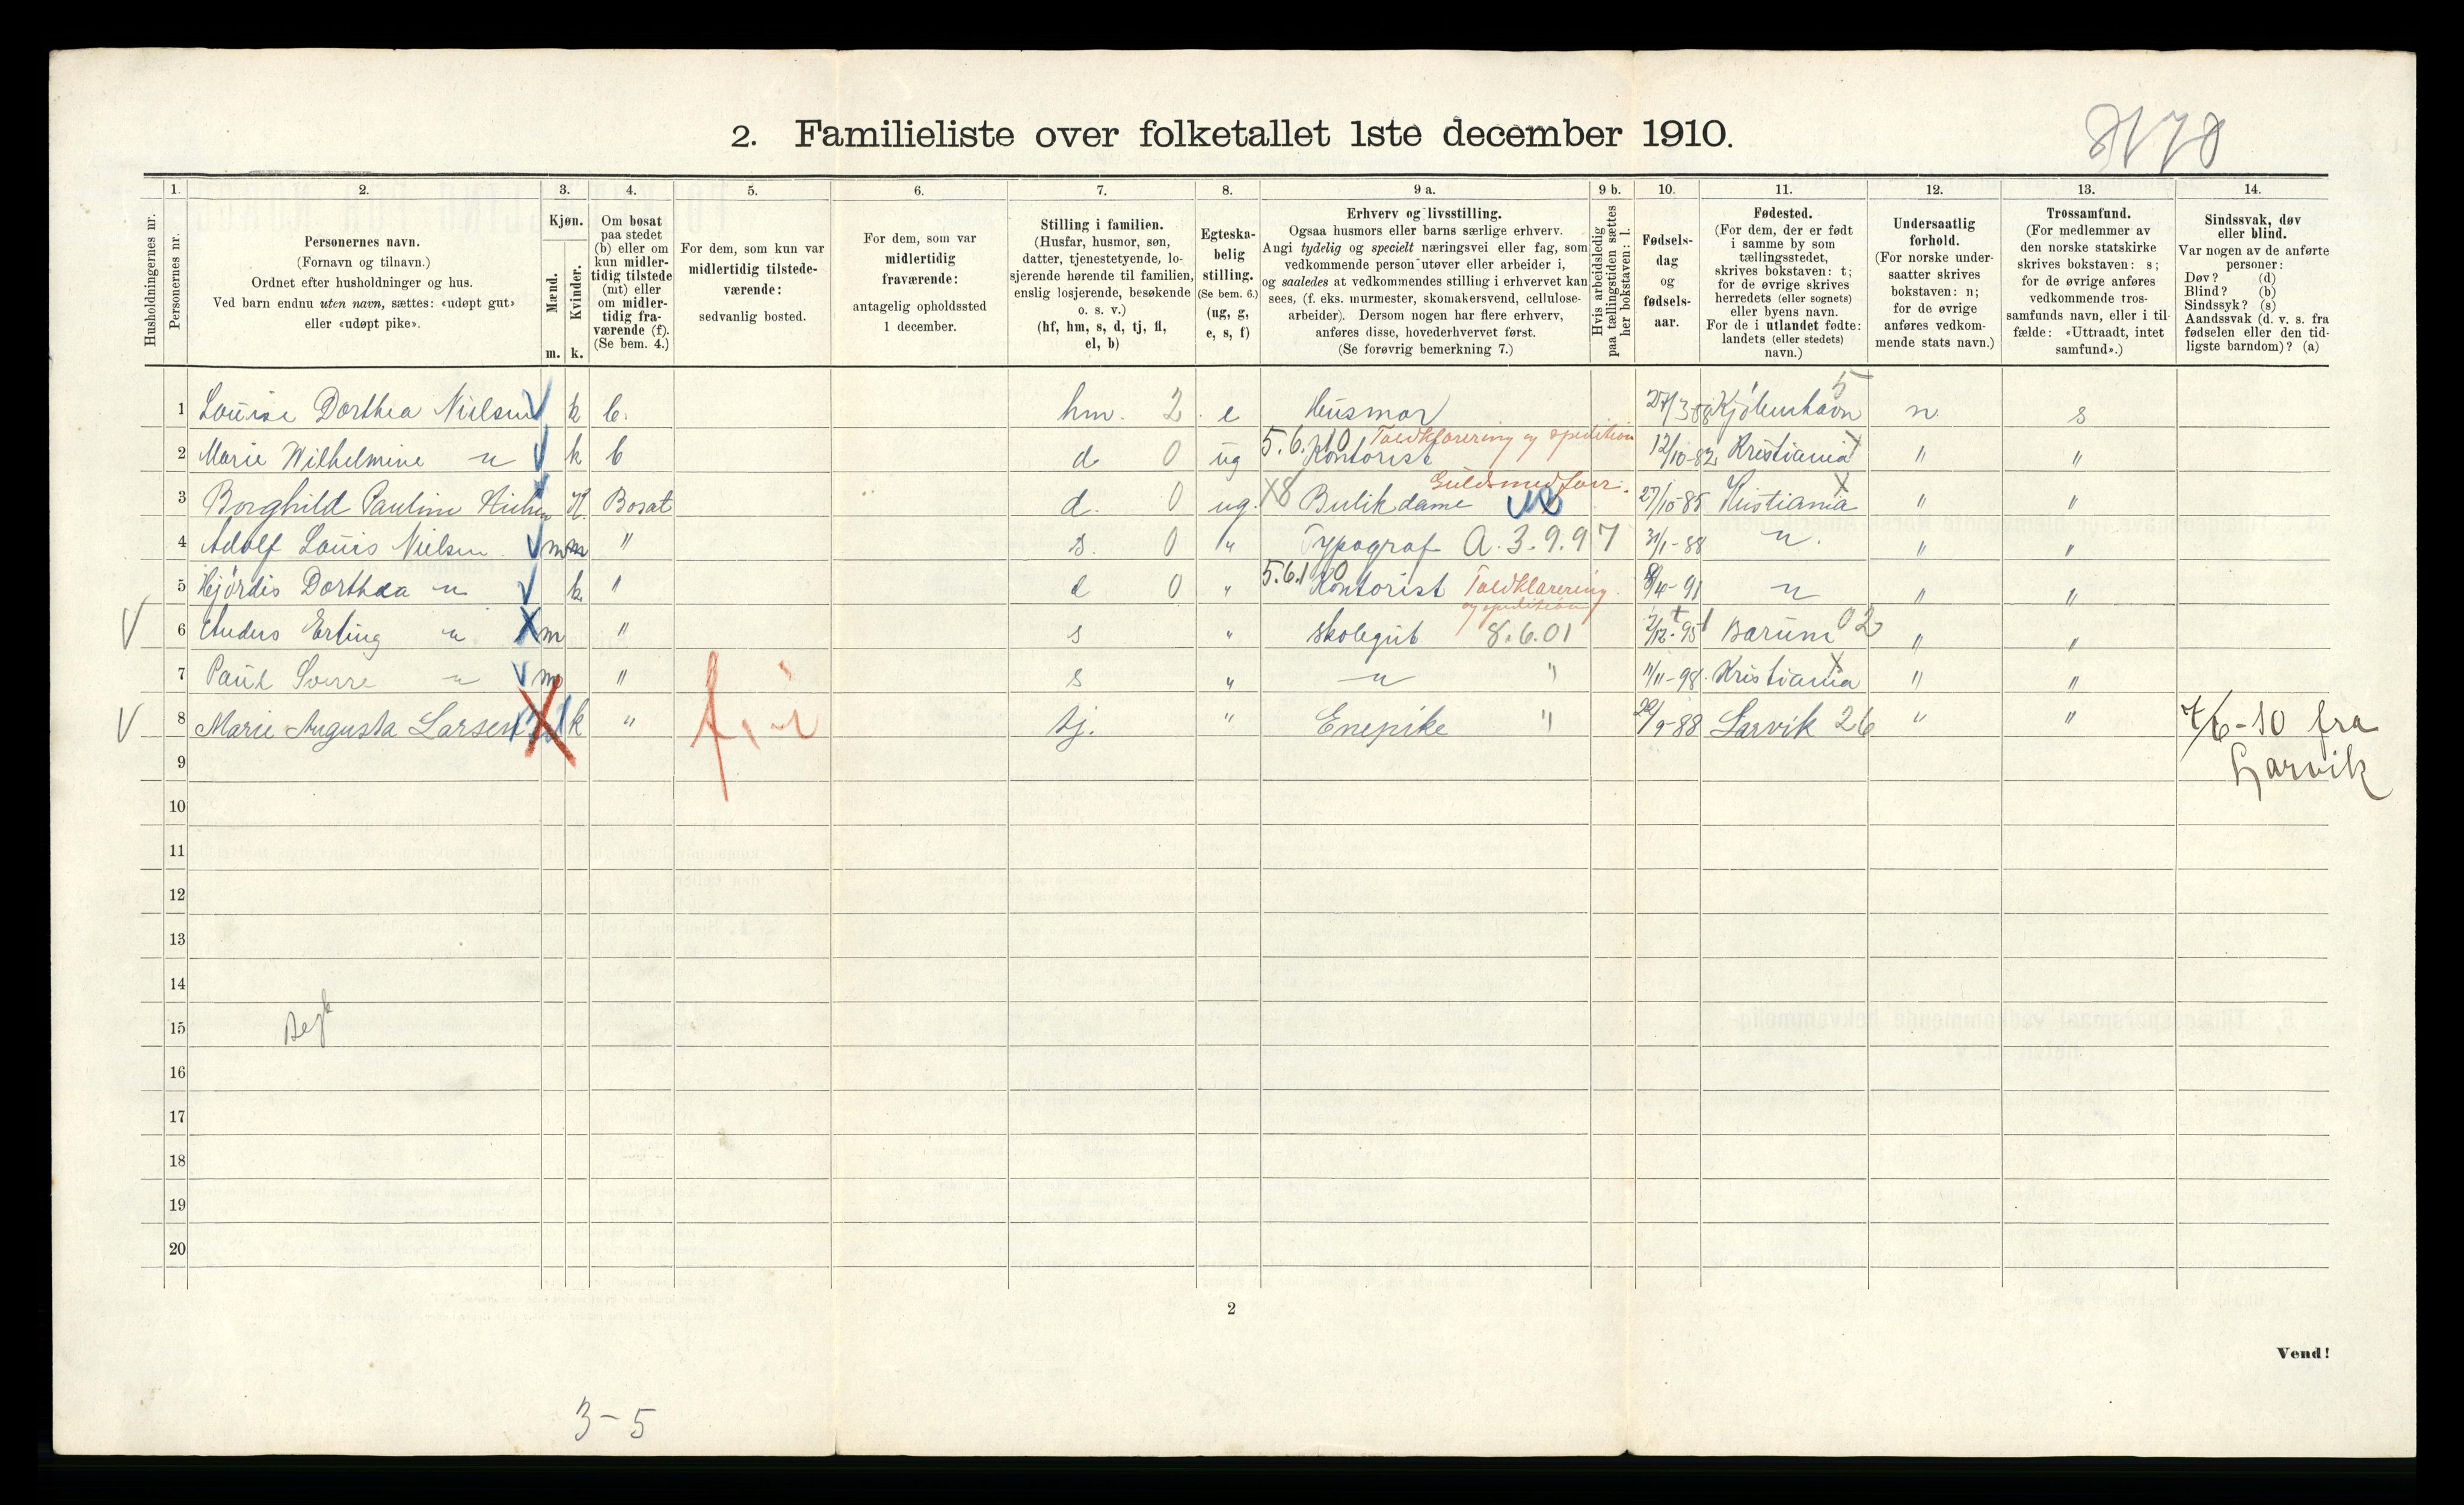 8178
2. Familieliste over folketallet 1ste december 1910.
Husholdningernes nr.
1. Personernes nr.
2. Personernes navn.
(Fornavn og tilnavn.)
Ordnet efter husholdninger og hus.
Ved barn endnu uten navn, sættes: «udøpt gut»
eller «udøpt pike».
3. Kjøn.
Mænd. m.
Kvinder. k.
4. Om bosat
paa stedet
(b) eller om
kun midler-
tidig tilstede
(mt) eller
om midler-
tidig fra-
værende (f).
(Se bem. 4.)
5. For dem, som kun var
midlertidig tilstede-
værende:
sedvanlig bosted.
6. For dem, som var
midlertidig
fraværende:
antagelig opholdssted
1 december.
7. Stilling i familien.
(Husfar, husmor, søn,
datter, tjenestetyende, lo-
sjerende hørende til familien,
enslig losjerende, besøkende
o. s. v.)
(hf, hm, s, d, tj, fl,
el, b)
8. Egteska-
belig
stilling.
(Se bem. 6.)
(ug, g,
e, s, f)
9 a. Erhverv og livsstilling.
Ogsaa husmors eller barns særlige erhverv.
Angi tydelig og specielt næringsvei eller fag, som
vedkommende person utøver eller arbeider i,
og saaledes at vedkommendes stilling i erhvervet kan
sees, (f. eks. murmester, skomakersvend, cellulose-
arbeider). Dersom nogen har flere erhverv,
anføres disse, hovederhvervet først.
(Se forøvrig bemerkning 7.)
9 b. Hvis arbeidsledig
paa tællingstiden sættes
her bokstaven: l.
10. Fødsels-
dag
og
fødsels-
aar.
11. Fødested.
(For dem, der er født
i samme by som
tællingsstedet,
skrives bokstaven: t;
for de øvrige skrives
herredets (eller sognets)
eller byens navn.
For de i utlandet fødte:
landets (eller stedets)
navn.)
12. Undersaatlig
forhold.
(For norske under-
saatter skrives
bokstaven: n;
for de øvrige
anføres vedkom-
mende stats navn.)
13. Trossamfund.
(For medlemmer av
den norske statskirke
skrives bokstaven: s;
for de øvrige anføres
vedkommende tros-
samfunds navn, eller i til-
fælde: «Uttraadt, intet
samfund».)
14. Sindssvak, døv
eller blind.
Var nogen av de anførte
personer:
Døv? (d)
Blind? (b)
Sindssyk? (s)
Aandssvak (d. v. s. fra
fødselen eller den tid-
ligste barndom)? (a)
1 Louise Dorthea Nielsen k b. hm. 2 e Husmor 27/3-58 Kjøbenhavn 5 n s
2 Marie Wilhelmine " k b d 0 ug 5.6.10 Kontorist Toldklarering og spedition 12/10-82 Kristiania " "
3 Borghild Pauline K. Bosat d. 0 ug. X8 Butikdame Guldsmedforr. 27/10-85 Kristiania " "
4 Adolf Louis Nielsen m " s. 0 " Typograf A.3.9.97 31/1-88 " " "
5 Hjördis Dorthea " k " d 0 " 5.6.10 Kontorist Toldklarering og spedition 8/4-91 " " "
6 Anders Erling " m " s " Skolegut 8.6.01 2/12-95 Bærum 02 " "
7 Paul Sverre " m " s " " " 11/11-98 Kristiania " "
8 Marie Augusta Larsen k " tj. " Enepike " 22/9-88 Larvik 26 " " 7/6-10 fra
Larvik
9
10
11
12
13
14
15
16
17
18
19
20
2
Vend!
3-5